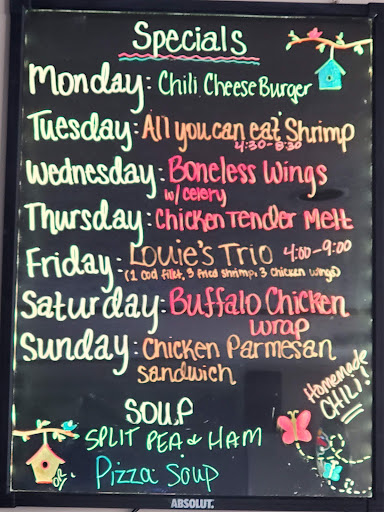 Specials
Monday: Chili Cheese Burger
Tuesday: All you can eat Shrimp
4:30-8:30
Wednesday: Boneless Wings
w/ celery
Thursday: Chicken Tender Melt
Friday: Louie's Trio 4:00-9:00
(1 cod fillet, 3 fried shrimp, 3 chicken wings)
Saturday: Buffalo Chicken
wrap
Sunday: Chicken Parmesan
Sandwich
Homemade
CHILI!
SOUP
SPLIT PEA & HAM
Pizza Soup
ABSOLUT.